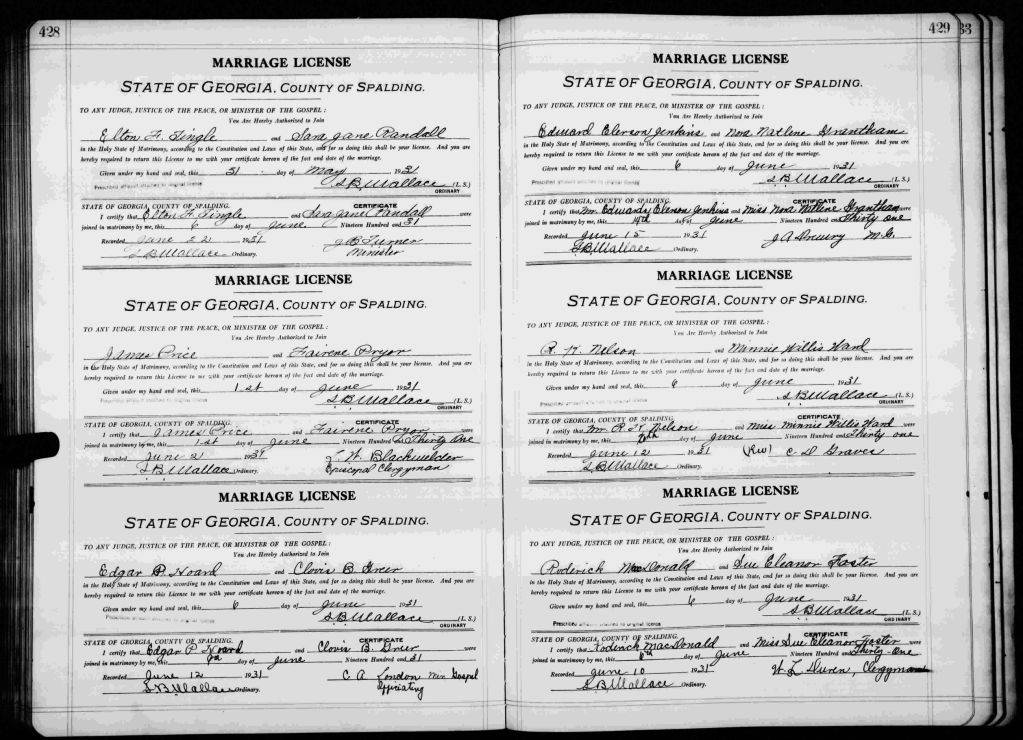 428
MARRIAGE LICENSE
STATE OF GEORGIA, COUNTY OF SPALDING.
TO ANY JUDGE, JUSTICE OF THE PEACE, OR MINISTER OF THE GOSPEL:
You Are Hereby Authorized to Join
Elton F. Tingle and Sara Jane Randall
in the Holy State of Matrimony, according to the Constitution and Laws of this State, and for so doing this shall be your license. And you are
hereby required to return this License to me with your certificate hereon of the fact and date of the marriage.
Given under my hand and seal, this 31 day of May 1931
Prescribed affidavit attached to original license S.B. Wallace (L. S.)
ORDINARY
STATE OF GEORGIA, COUNTY OF SPALDING. CERTIFICATE
I certify that Elton F. Tingle and Sara Jane Randall were
joined in matrimony by me, this 6 day of June Nineteen Hundred and 31
Recorded June 22 1931 J B Turner
S B Wallace Ordinary. Minister
MARRIAGE LICENSE
STATE OF GEORGIA, COUNTY OF SPALDING.
TO ANY JUDGE, JUSTICE OF THE PEACE, OR MINISTER OF THE GOSPEL:
You Are Hereby Authorized to Join
James Price and Fairene Pryor
in the Holy State of Matrimony, according to the Constitution and Laws of this State, and for so doing this shall be your license. And you are
hereby required to return this License to me with your certificate hereon of the fact and date of the marriage.
Given under my hand and seal, this 1st day of June 1931
Prescribed affidavit attached to original license S.B. Wallace (L. S.)
ORDINARY
STATE OF GEORGIA, COUNTY OF SPALDING. CERTIFICATE
I certify that James Price and Fairene Pryor were
joined in matrimony by me, this 1st day of June Nineteen Hundred and Thirty One
Recorded June 2 1931 L. W. Blackwelder
S.B. Wallace Ordinary. Episcopal Clergyman
MARRIAGE LICENSE
STATE OF GEORGIA, COUNTY OF SPALDING.
TO ANY JUDGE, JUSTICE OF THE PEACE, OR MINISTER OF THE GOSPEL:
You Are Hereby Authorized to Join
Edgar P. Hoard and Clovis B. Greer
in the Holy State of Matrimony, according to the Constitution and Laws of this State, and for so doing this shall be your license. And you are
hereby required to return this License to me with your certificate hereon of the fact and date of the marriage.
Given under my hand and seal, this 6 day of June 1931
Prescribed affidavit attached to original license S.B. Wallace (L. S.)
ORDINARY
STATE OF GEORGIA, COUNTY OF SPALDING. CERTIFICATE
I certify that Edgar P. Hoard and Clovis B. Greer were
joined in matrimony by me, this day of June Nineteen Hundred and 31
Recorded June 12 1931 C. A. London Min Gospel
S.B. Wallace Ordinary. Officiating
429
33
MARRIAGE LICENSE
STATE OF GEORGIA, COUNTY OF SPALDING.
TO ANY JUDGE, JUSTICE OF THE PEACE, OR MINISTER OF THE GOSPEL:
You Are Hereby Authorized to Join
Edward Elerson Jenkins and Nora Natlene Grantham
in the Holy State of Matrimony, according to the Constitution and Laws of this State, and for so doing this shall be your license. And you are
hereby required to return this License to me with your certificate hereon of the fact and date of the marriage.
Given under my hand and seal, this 6 day of June 1931
Prescribed affidavit attached to original license S.B. Wallace (L. S.)
ORDINARY
STATE OF GEORGIA, COUNTY OF SPALDING. CERTIFICATE
I certify that Mr. Edward Elerson Jenkins and Miss Nora Natlene Grantham were
joined in matrimony by me, this day of June Nineteen Hundred and Thirty one
Recorded June 15 1931 J A Drewry M. G.
S.B. Wallace Ordinary.
MARRIAGE LICENSE
STATE OF GEORGIA, COUNTY OF SPALDING.
TO ANY JUDGE, JUSTICE OF THE PEACE, OR MINISTER OF THE GOSPEL:
You Are Hereby Authorized to Join
R. H. Nelson and Minnie Willis Ward
in the Holy State of Matrimony, according to the Constitution and Laws of this State, and for so doing this shall be your license. And you are
hereby required to return this License to me with your certificate hereon of the fact and date of the marriage.
Given under my hand and seal, this 6 day of June 1931
Prescribed affidavit attached to original license S.B. Wallace (L. S.)
ORDINARY
STATE OF GEORGIA, COUNTY OF SPALDING. CERTIFICATE
I certify that Mr. R. H. Nelson and Miss Minnie Willis Ward were
joined in matrimony by me, this day of June Nineteen Hundred and Thirty one
Recorded June 12 1931 (Rev) C. D Graves
S.B. Wallace Ordinary.
MARRIAGE LICENSE
STATE OF GEORGIA, COUNTY OF SPALDING.
TO ANY JUDGE, JUSTICE OF THE PEACE, OR MINISTER OF THE GOSPEL:
You Are Hereby Authorized to Join
Roderick MacDonald and Sue Eleanor Foster
in the Holy State of Matrimony, according to the Constitution and Laws of this State, and for so doing this shall be your license. And you are
hereby required to return this License to me with your certificate hereon of the fact and date of the marriage.
Given under my hand and seal, this 6 day of June 1931
Prescribed affidavit attached to original license S.B. Wallace (L. S.)
ORDINARY
STATE OF GEORGIA, COUNTY OF SPALDING. CERTIFICATE
I certify that Roderick MacDonald and Miss Sue Eleanor Foster were
joined in matrimony by me, this 6th day of June Nineteen Hundred and Thirty-One
Recorded June 10 1931 W L Duren, Clergyman
S.B. Wallace Ordinary.